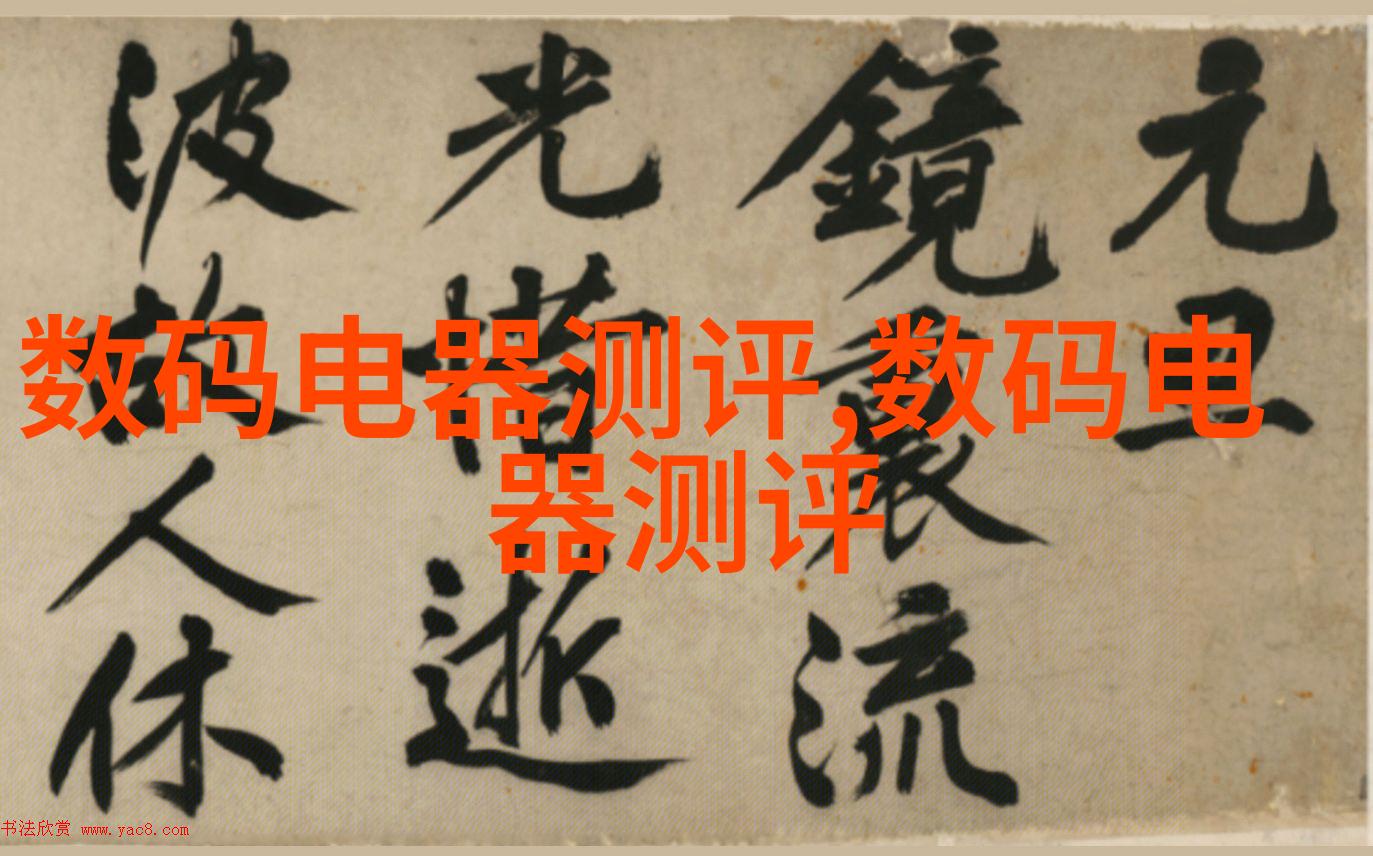 元
鏡裏流
光惜逝
波故人休
数码电器测评,数码电
器测评
书法欣赏 www.yac8.com